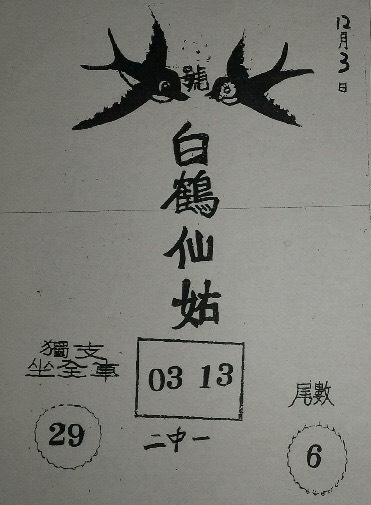 12月3日
號
白鶴仙姑
獨支
坐全車
29
03 13
二中一
尾數
6